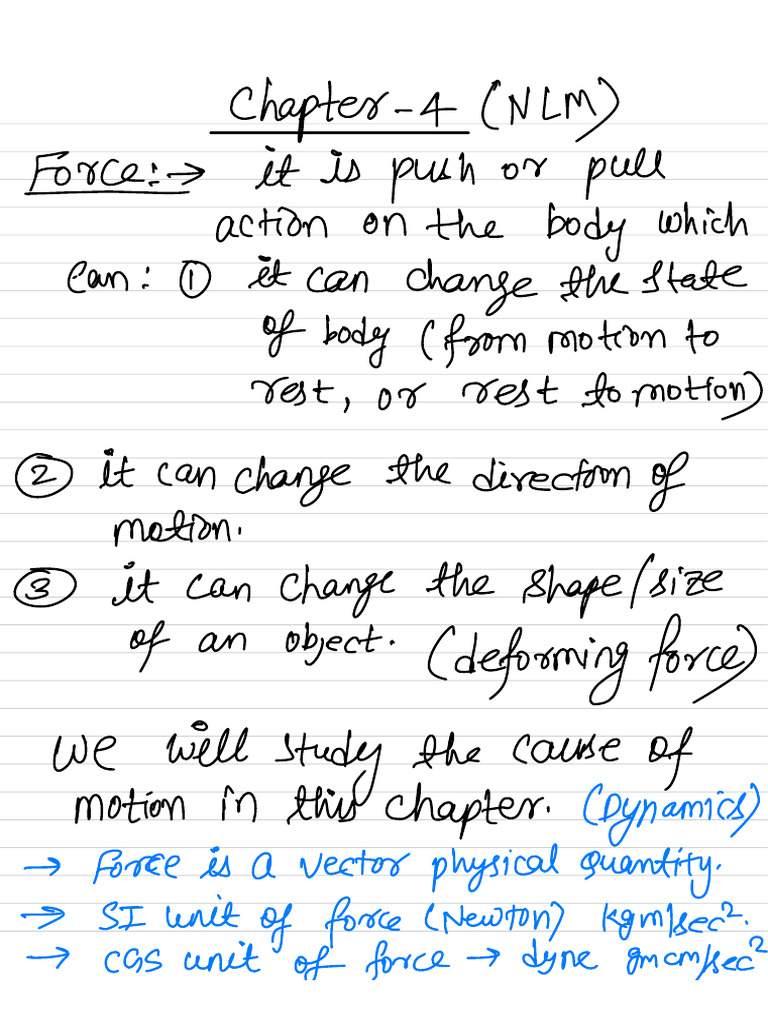 Chapter-4 (NLM)
Force:→ it is push or pull
action on the body which
can: ① it can change the state
of body (from motion to
rest, or rest to motion)
② it can change the direction of
motion.
③ it can change the shape/size
of an object. (deforming force)
we will study the cause of
motion in this chapter. (Dynamics)
→ Force is a vector physical quantity.
→ SI unit of force (Newton) kgm/sec².
→ CGS unit of force → dyne gmcm/sec²